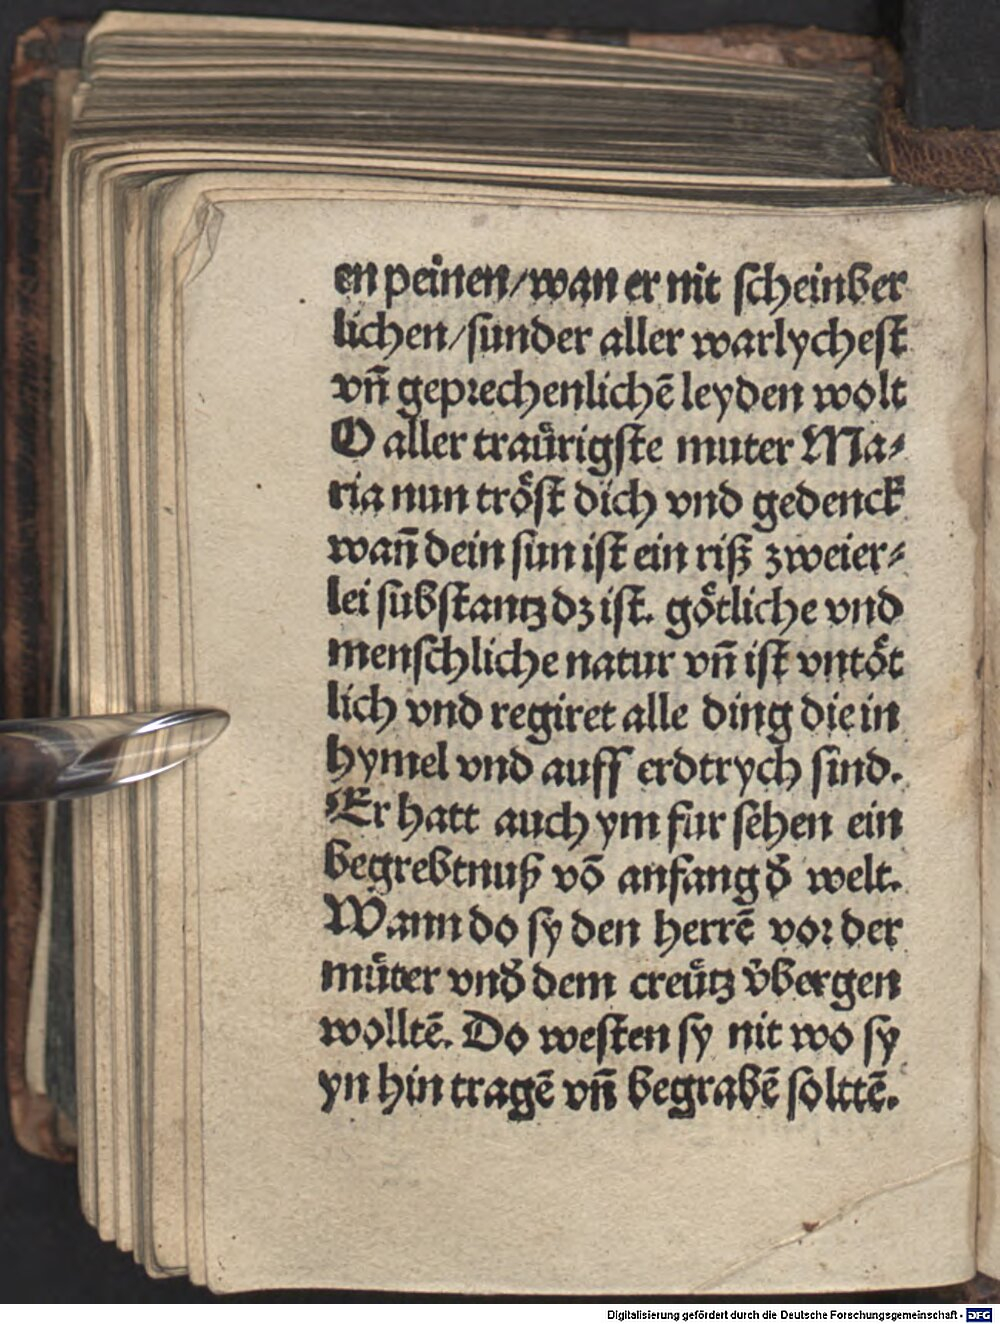 en peinen/wan er nit scheinber
lichen/sunder aller warlychest
vñ geprechenlichē leyden wolt
O aller traůrigste muter Ma⸗
ria nun trőst dich vnd gedenck
wañ dein sun ist ein riß zweier⸗
lei substantz dz ist. gőtliche vnd
menschliche natur vñ ist vntőt
lich vnd regiret alle ding die in
hymel vnd auff erdtrych sind.
Er hatt auch ym fur sehen ein
begrebtnuß vō anfang d̄ welt.
Wann do sy den herrē vor der
můter vnd̄ dem creůtz v̊bergen
wolltē. Do westen sy nit wo sy
yn hin tragē vñ begrabē solttē.
Digitalisierung gefördert durch die Deutsche Forschungsgemeinschaft - DFG